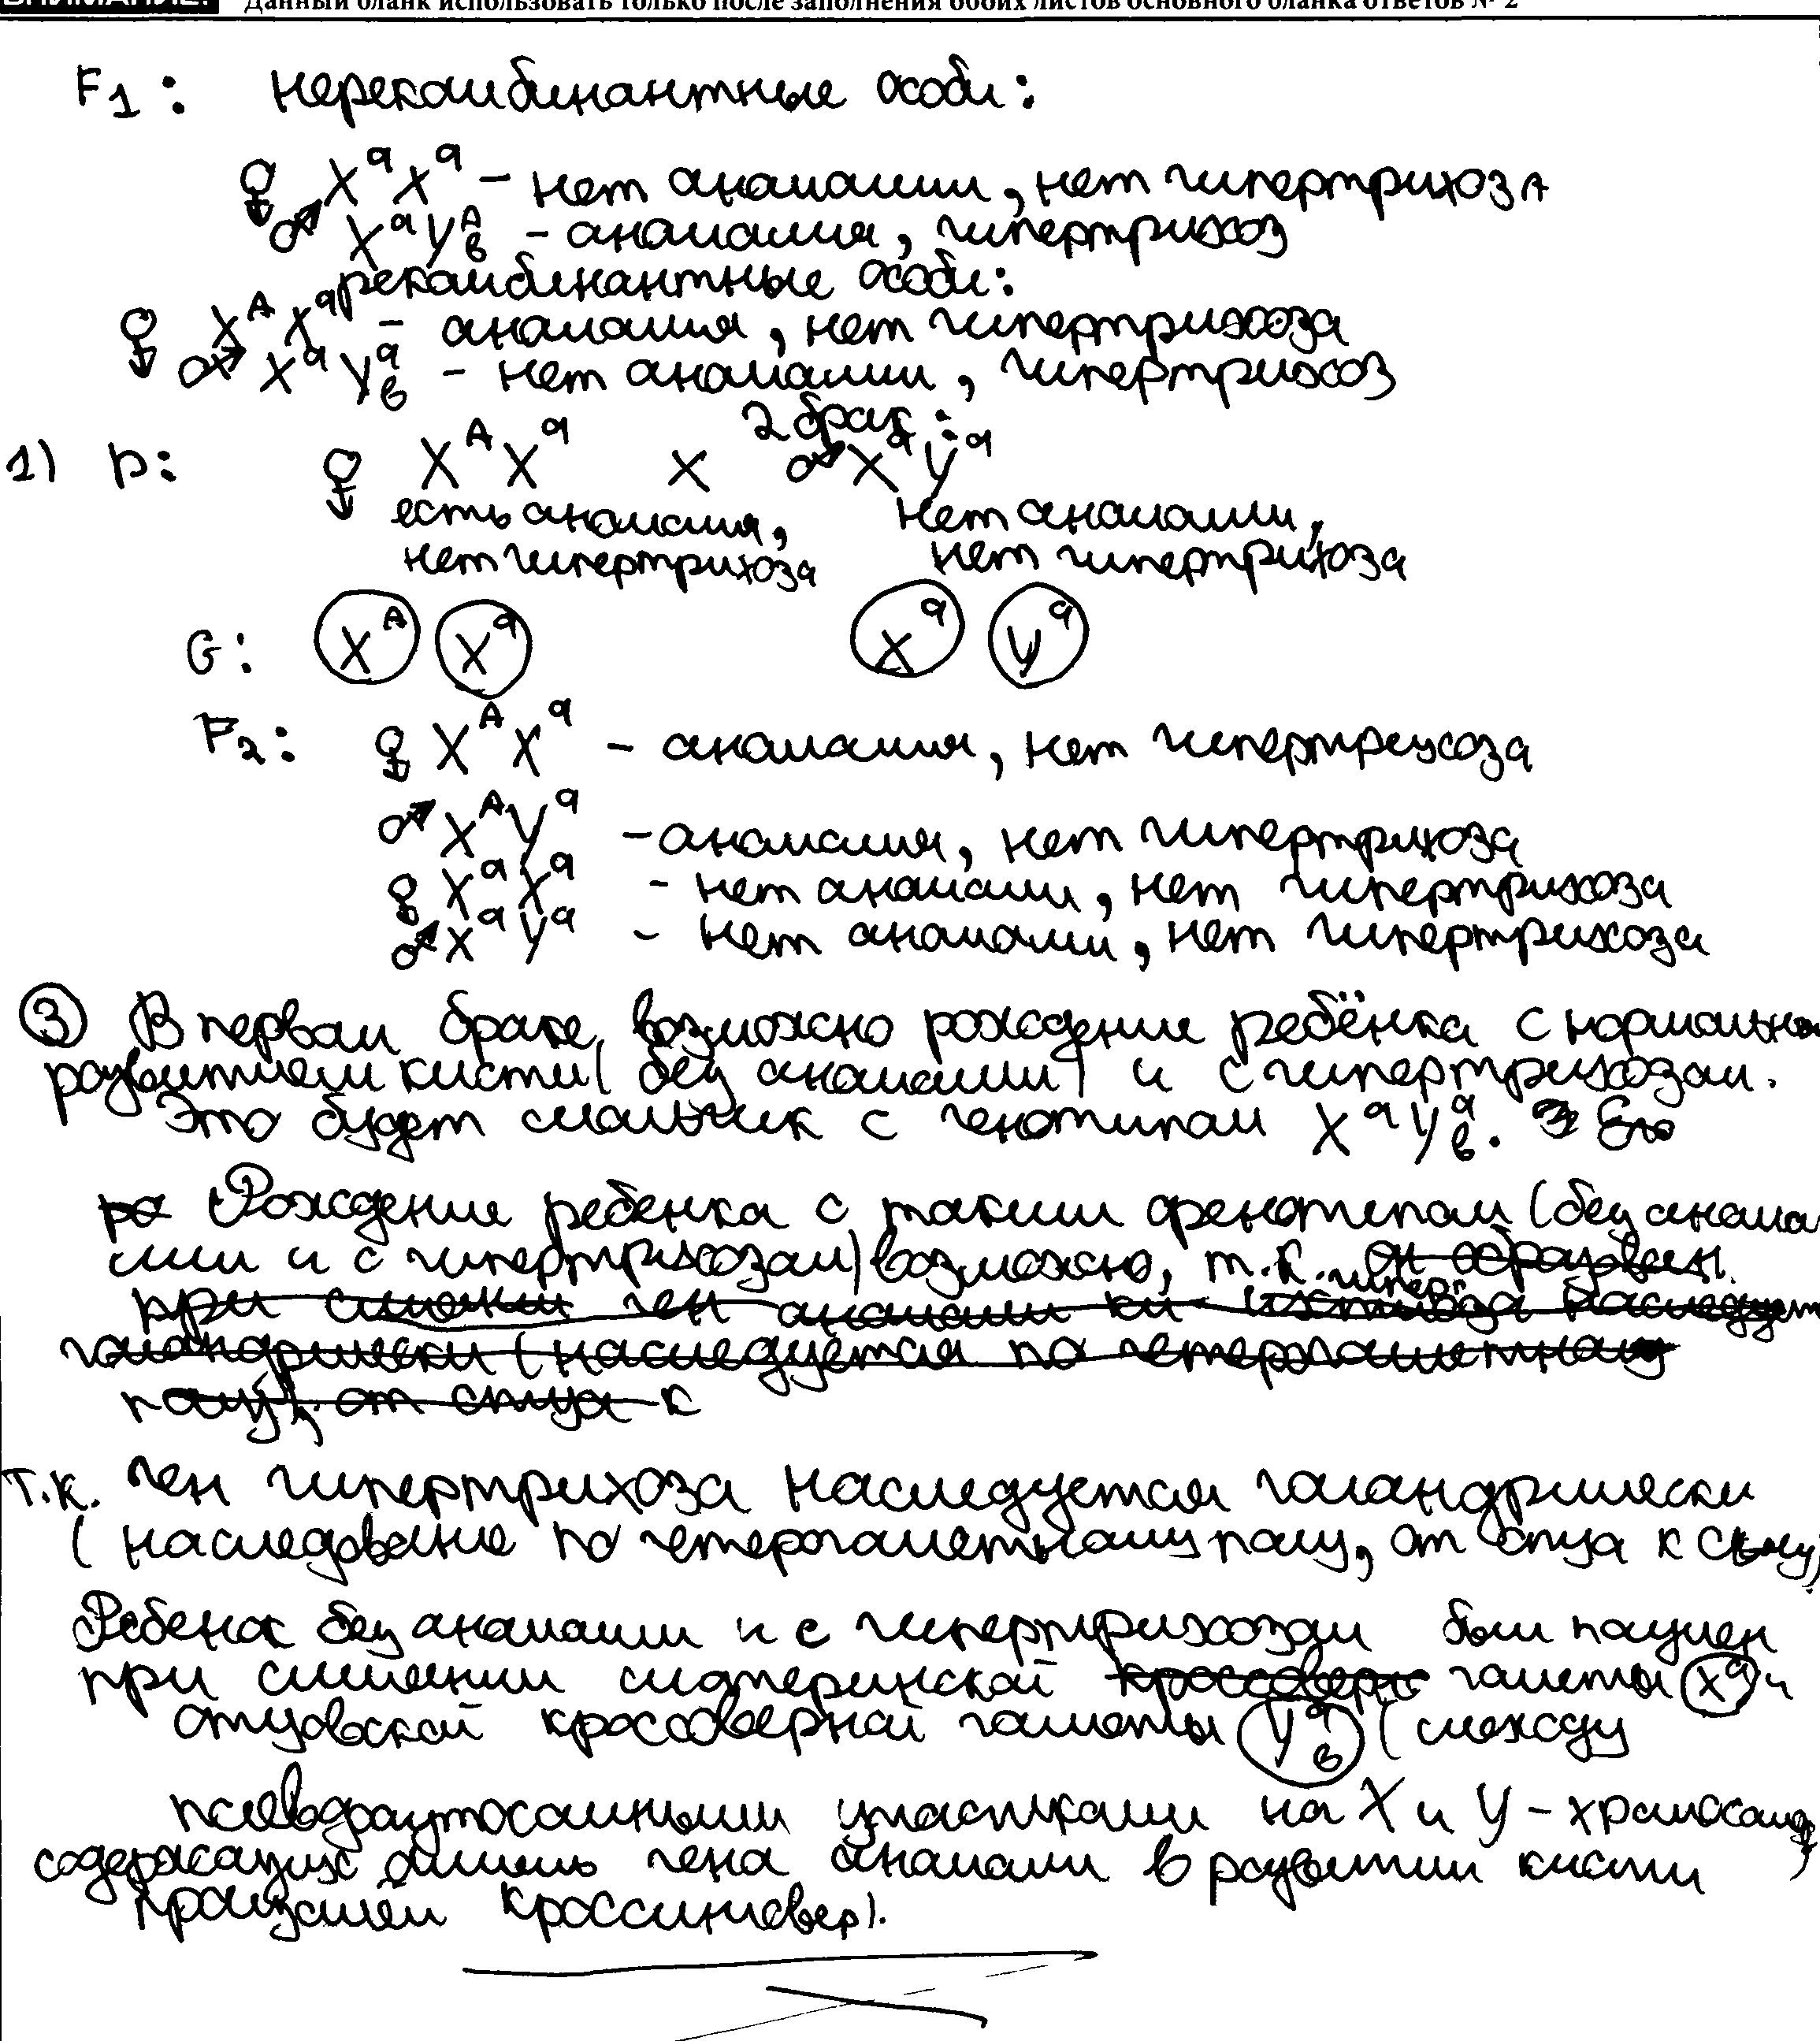 ВНИМАНИЕ! Данный бланк использовать только после заполнения обоих листов основного бланка ответов № 2
F1: нерекомбинантные особи:
♀ XᵃXᵃ – нет аномалии, нет гипертрихоза
♂ XᵃYᴬв – аномалия, гипертрихоз
рекомбинантные особи:
♀ XᴬXᵃ – аномалия, нет гипертрихоза
♂ XᵃYᵃв – нет аномалии, гипертрихоз
2 брак:
1) P: ♀ XᴬXᵃ x ♂ XᵃYᵃ
есть аномалия, нет аномалии,
нет гипертрихоза нет гипертрихоза
G: Xᴬ Xᵃ Xᵃ Yᵃ
F2: ♀ XᴬXᵃ – аномалия, нет гипертрихоза
♂ XᴬYᵃ – аномалия, нет гипертрихоза
♀ XᵃXᵃ – нет аномалии, нет гипертрихоза
♂ XᵃYᵃ – нет аномалии, нет гипертрихоза
3 В первом браке возможно рождение ребёнка с нормальном
развитием кисти (без аномалии) и с гипертрихозом.
Это будет мальчик с генотипом XᵃYᵃв. Его
ро Рождение ребенка с таким фенотипом (без анома
лии и с гипертрихозом) возможно, т.к. он образован
при слиянии ген аномалии ки гипер наследует
голандрически (наследуется по гетерогаметному
полу), от отца к
т.к. ген гипертрихоза наследуется голандрически
(наследование по гетерогаметному полу, от отца к сыну)
Ребенок без аномалии и с гипертрихозом был получен
при слиянии материнской кроссовер гаметы Xᵃ и
отцовской кроссоверной гаметы Yᵃв (между
псевдоаутосомными участками на X и Y – хромосомах,
содержащих аллель гена аномалии в развитии кисти
произошёл кроссинговер).